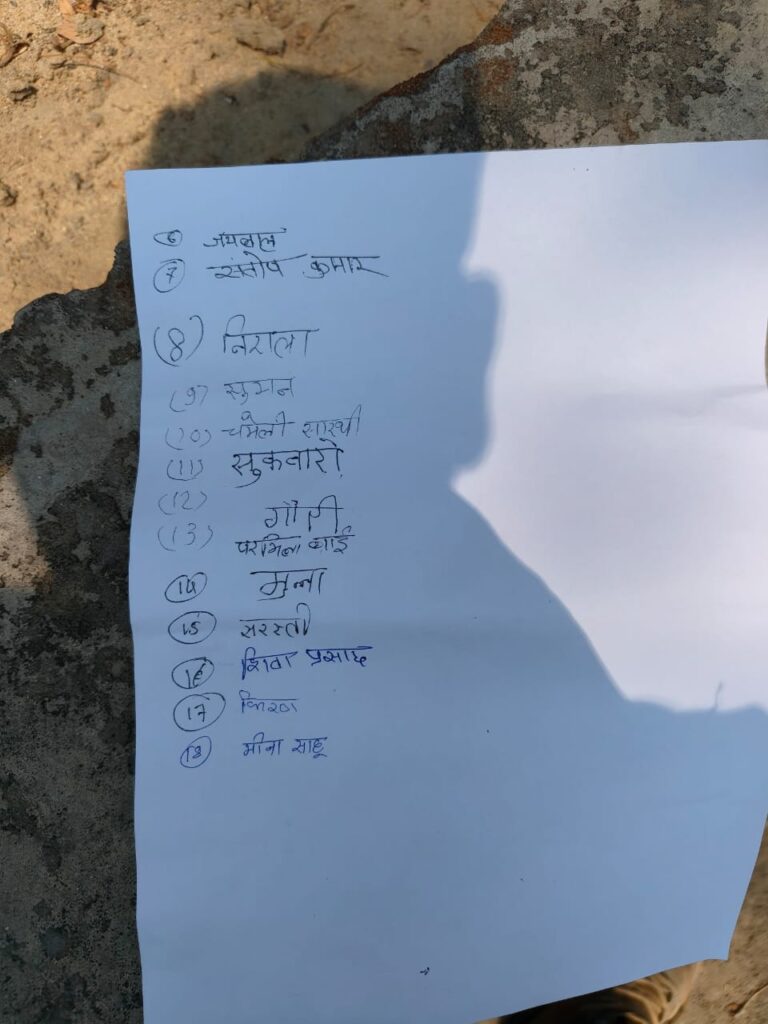 6 जयलाल
7 संतोष कुमार
(8) निराला
(9) सुमन
(10) चमेली सारथी
(11) सुकवारो
(12) गौरी
(13) परमिला बाई
14 मुन्ना
15 सरस्ती
16 शिवा प्रसाद
17 किरण
18 मीना साहू